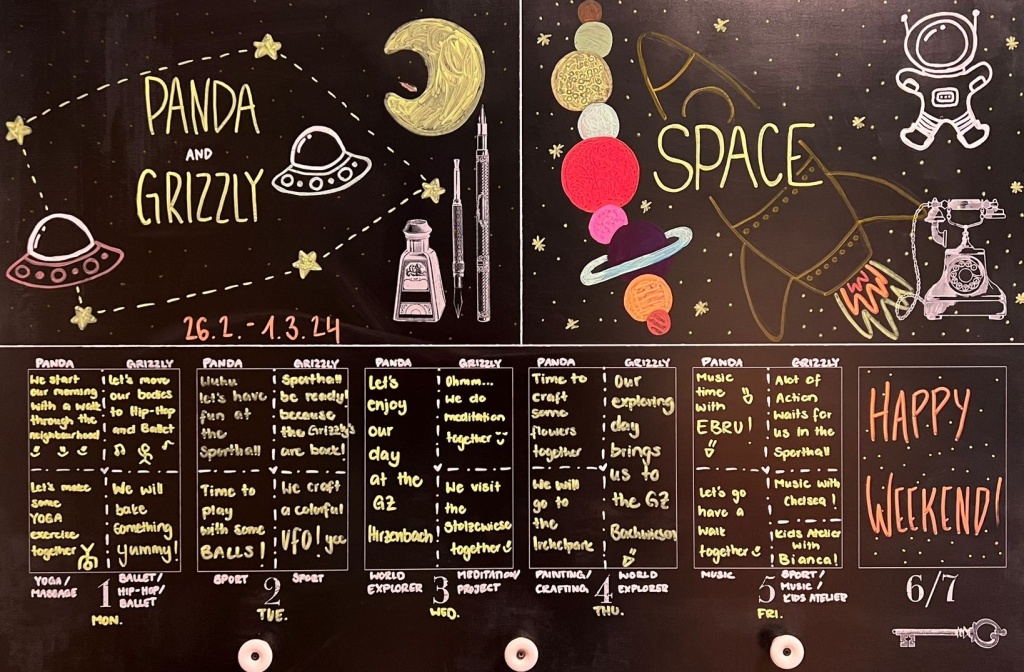 PANDA
AND
GRIZZLY
26.2.-1.3.24
SPACE
PANDA
We start
our morning
with a walk
through the
neighbourhood
Let's make
some
YOGA
exercise
together
YOGA/
MASSAGE
GRIZZLY
Let's move
our bodies
to Hip-Hop
and Ballet
We will
bake
something
yummy!
BALLET/
HIP-HOP/
BALLET
1
MON.
PANDA
Wuhu
let's have
fun at
the
Sporthall
Time to
play
with some
BALLS!
SPORT
GRIZZLY
Sporthall
be ready!
because
the Grizzly's
are back!
We craft
a colorful
UFO! yee
SPORT
2
TUE.
PANDA
Let's
enjoy
our
day
at the
GZ
Hirzenbach
WORLD
EXPLORER
GRIZZLY
Ohmm...
We do
meditation
together
We visit
the
Stolzewiese
together
MEDITATION/
PROJECT
3
WED.
PANDA
Time to
craft
some
flowers
together
We will
go to
the
Irchelpark
PAINTING/
CRAFTING
GRIZZLY
Our
exploring
day
brings
us to
the GZ
Bachwiesen
WORLD
EXPLORER
4
THU.
PANDA
Music
time
with
EBRU!
Let's go
have a
walk
together
MUSIC
GRIZZLY
Alot of
Action
waits for
us in the
Sporthall
Music with
Chelsea!
Kids Atelier
with
Bianca!
SPORT/
MUSIC/
KIDS ATELIER
5
FRI.
HAPPY
WEEKEND!
6/7